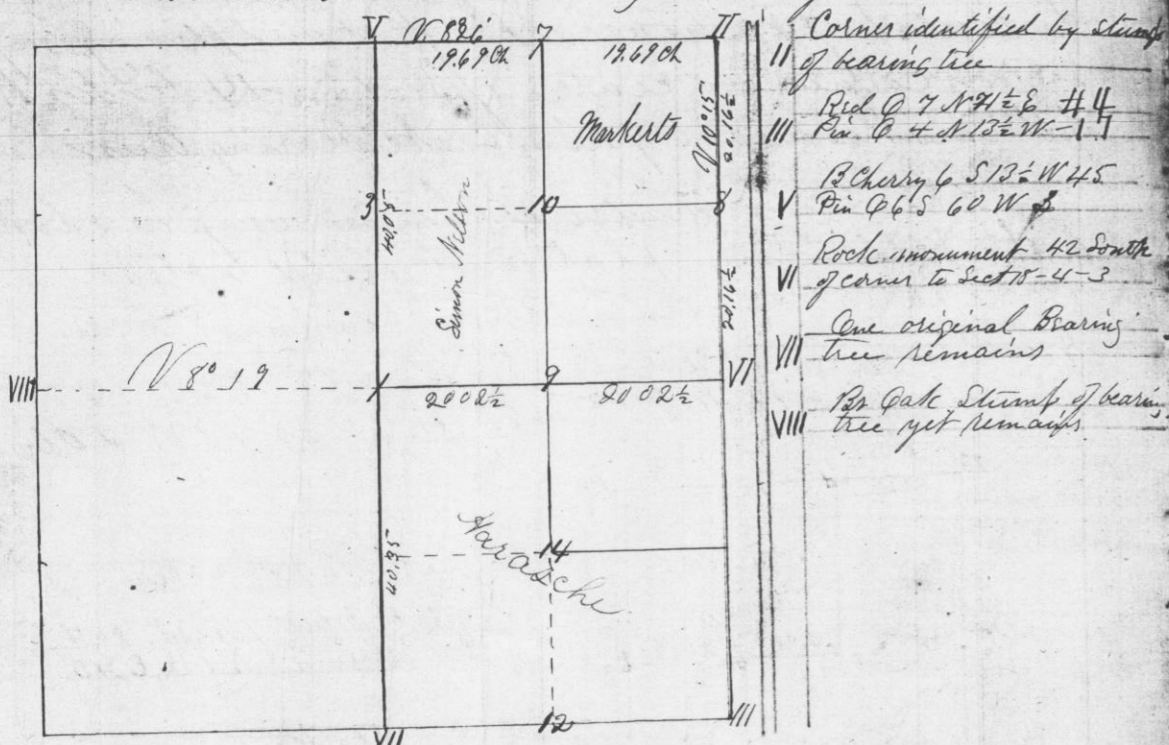 V V 826 7 II
19.69 Ch 19.69 Ch
Markerts
V 10° 15
20.16½
3 10 8
40.05
Simon Nelson
20.16½
VIII V 8° 19 1 9 VI
20 02½ 20 02½
Harasche
14
40.35
VII 12 III
Corner identified by stump
II of bearing tree
Red O 7 N 71½ E #4
III Pin O 4 N 13½ W - 17
B Cherry 6 S 13½ W 45
V Pin O 6 S 60 W
Rock monument 42 South
VI of corner to Sect 18-4-3
One original Bearing
VII tree remains
Br Oak Stump of bearing
VIII tree yet remains